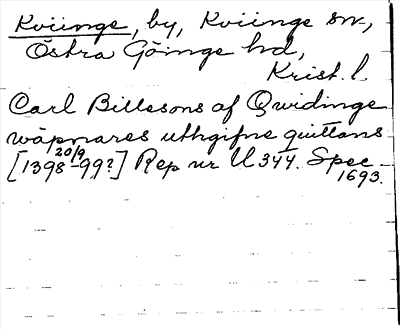 Kviinge, by, Kviinge sn,
Östra Göinge hd,
Krist. l.
Carl Billesons af Qwidinge
wäpnares uthgifne quittans
[1398 20/9 -99?] Rep nr U 344. Spec
1693.